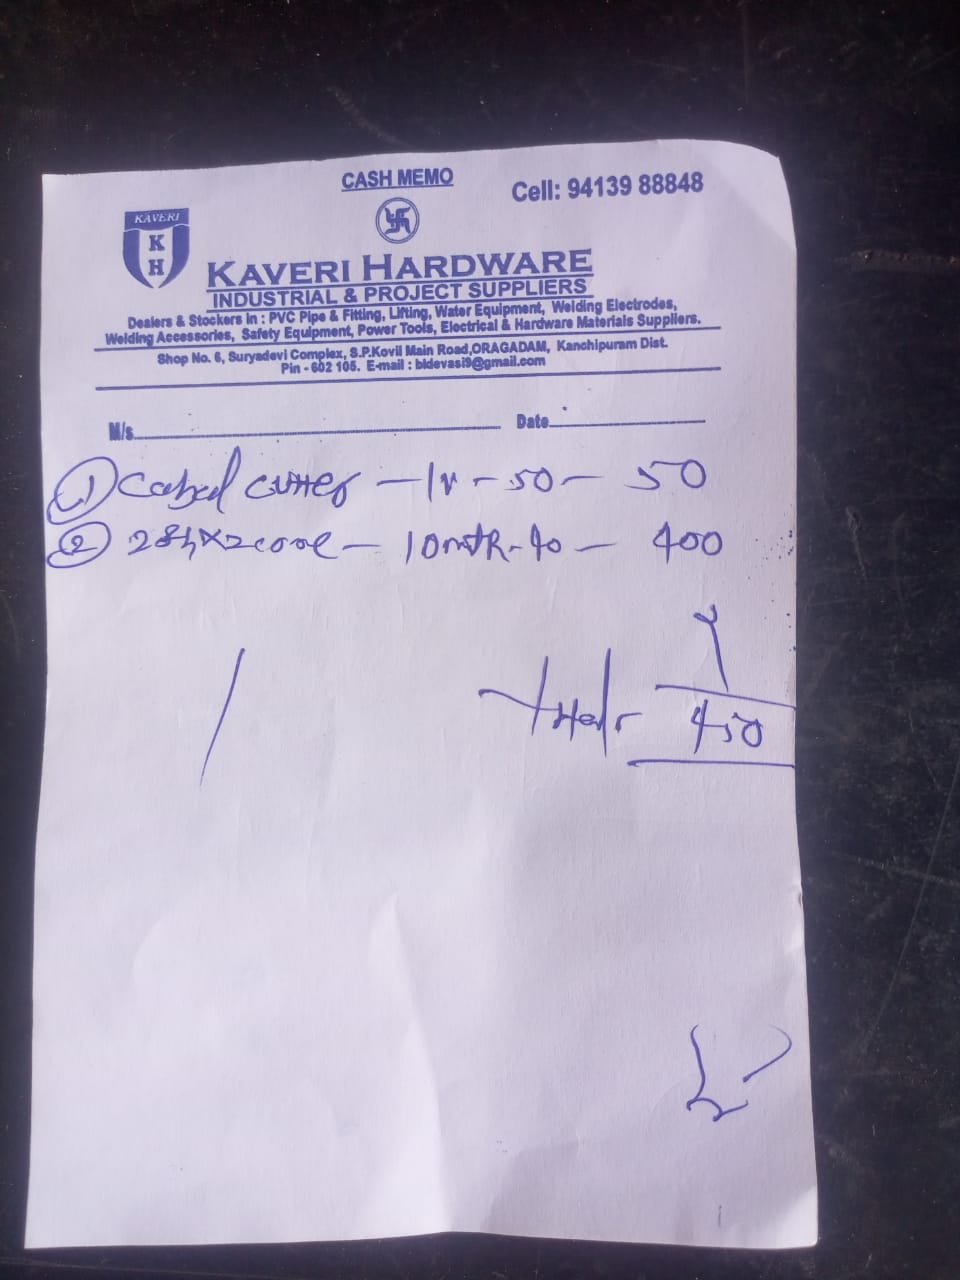 CASH MEMO
Cell: 94139 88848
KAVERI
K
H
KAVERI HARDWARE
INDUSTRIAL & PROJECT SUPPLIERS
Dealers & Stockers in : PVC Pipe & Fitting, Lifting, Water Equipment, Welding Electrodes,
Welding Accessories, Safety Equipment, Power Tools, Electrical & Hardware Materials Suppliers.
Shop No. 6, Suryadevi Complex, S.P.Kovil Main Road,ORAGADAM, Kanchipuram Dist.
Pin - 602 105. E-mail : bldevasi9@gmail.com
M/s. Date
① cabel cutter - 1 - 50 - 50
② core - 10mtR - 40 - 400
total - 450